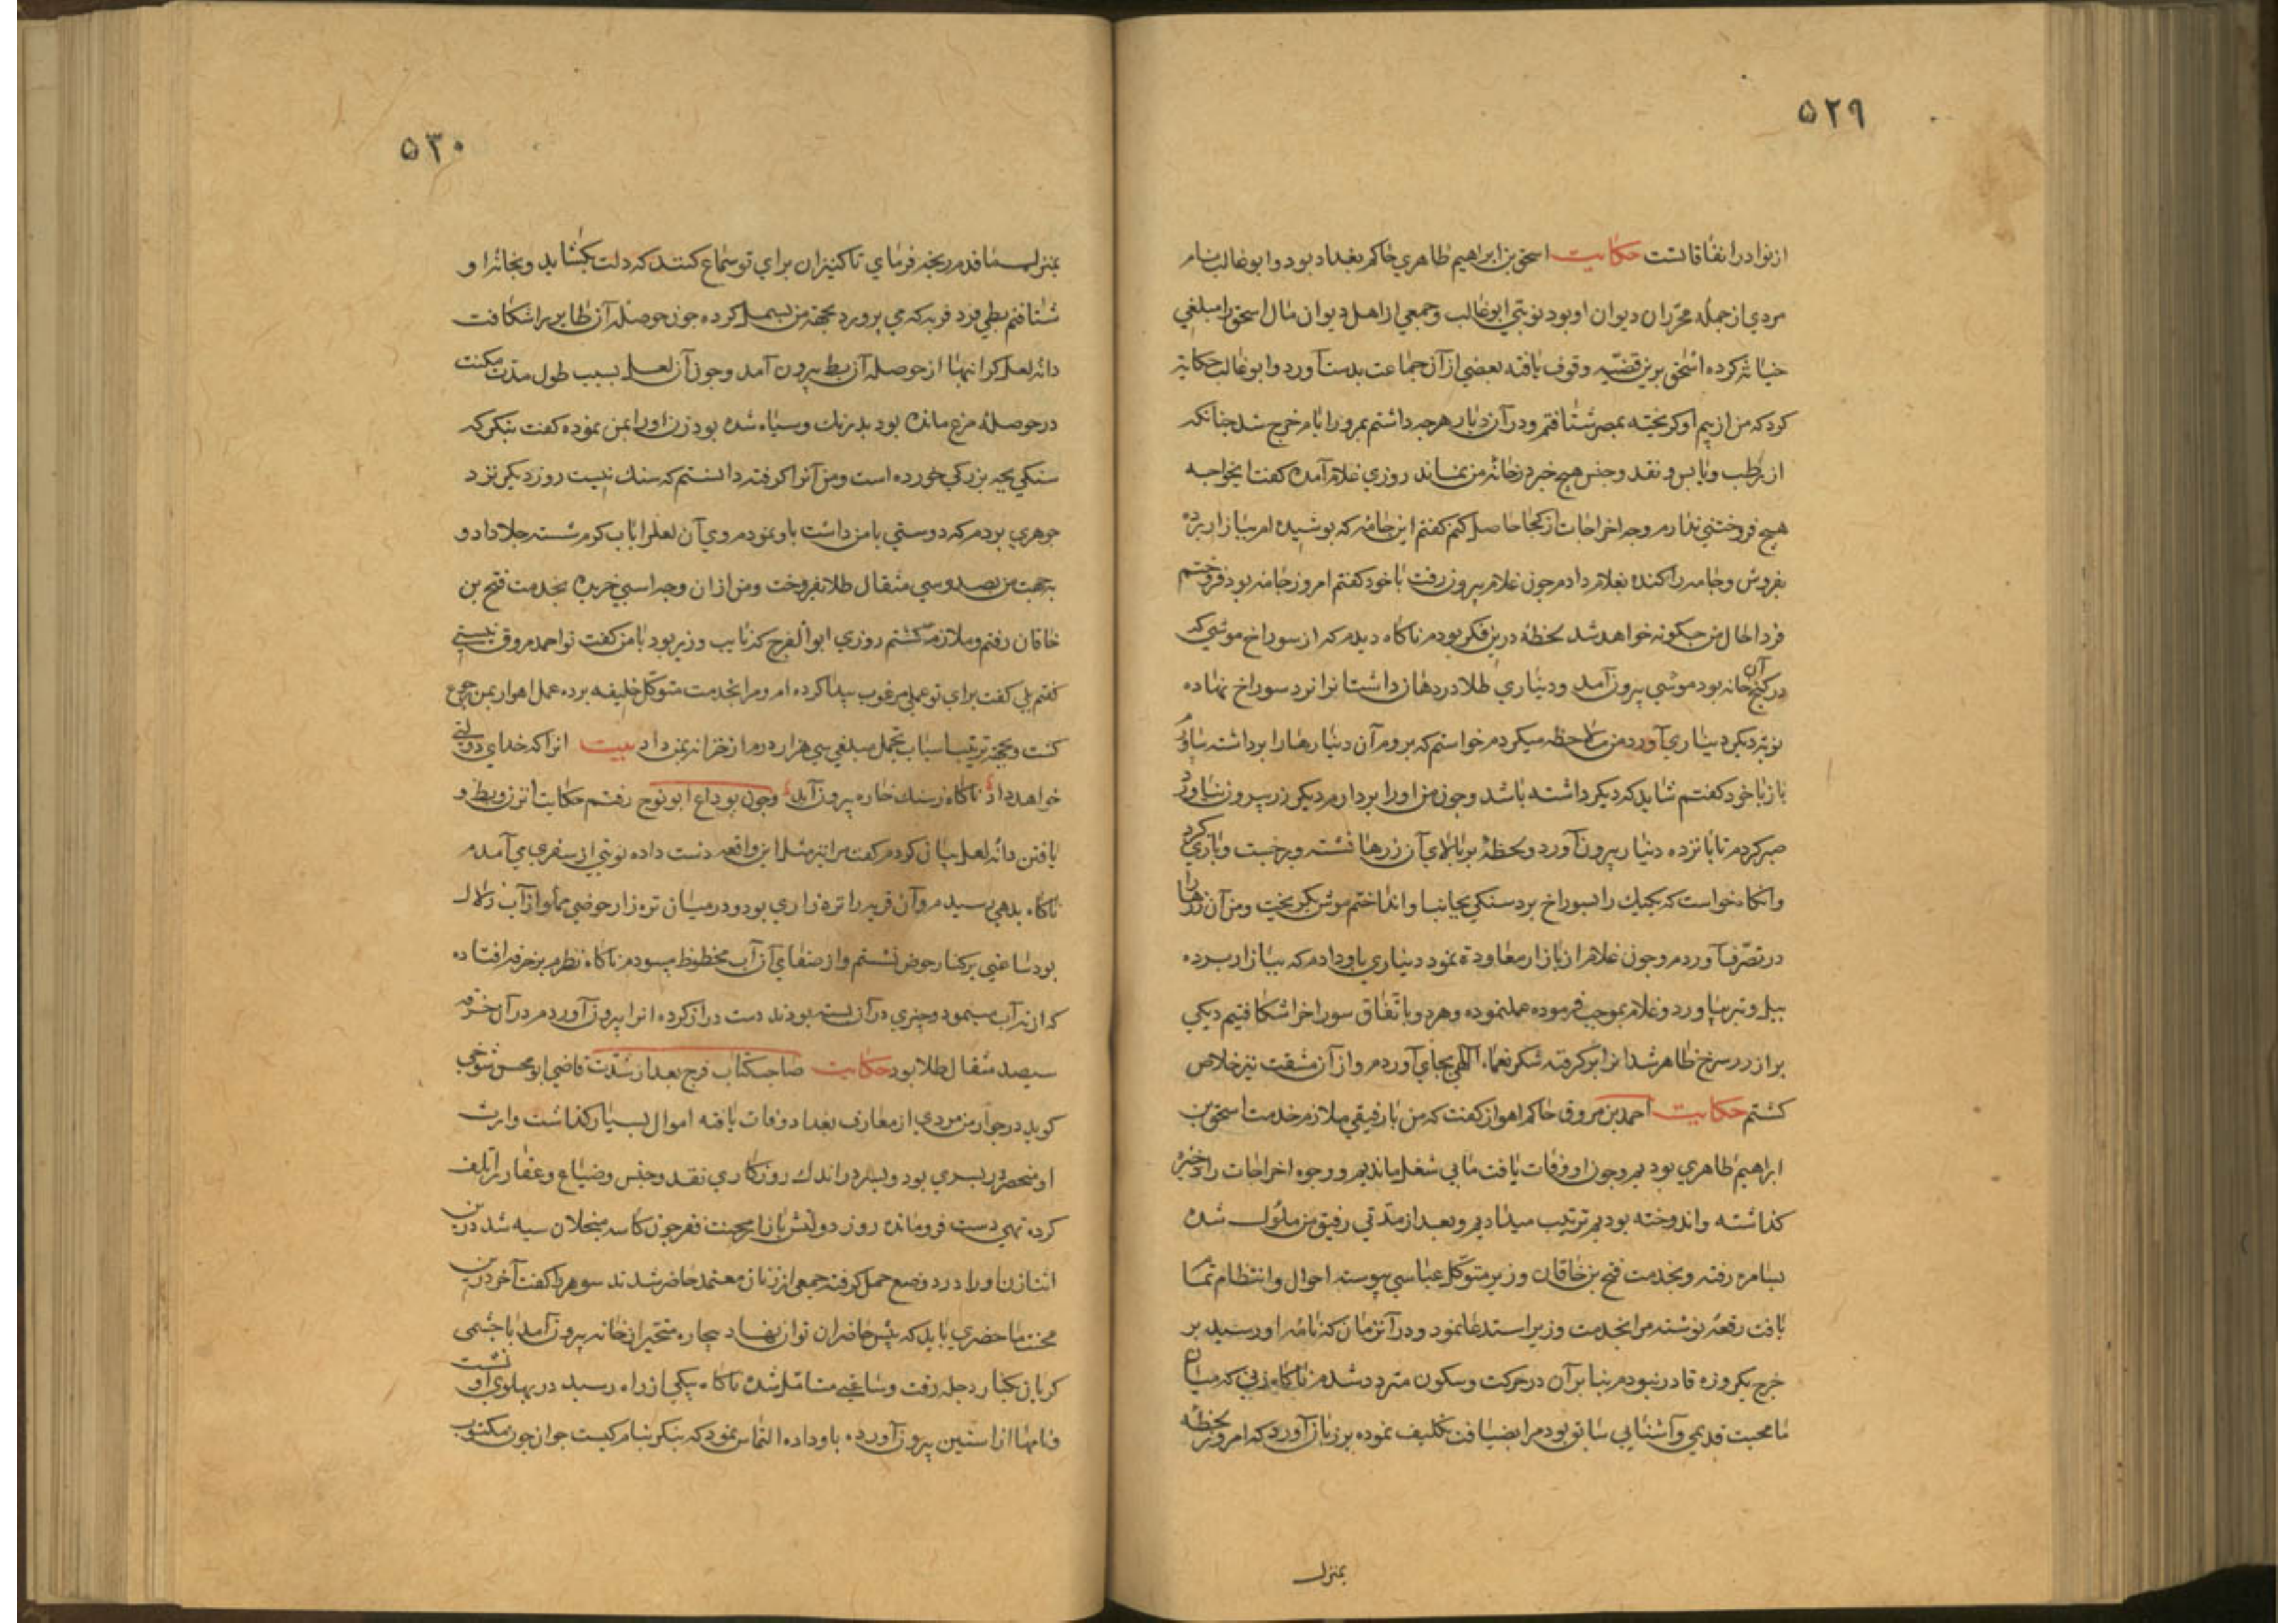 ۵۲۹
از نوادر اتفاقاتست حکایت اسحق بن ابراهیم طاهری حاکم بغداد بود و ابو غالب نام
مردی از جمله محرّران دیوان او بود نوبتی ابو غالب و جمعی از اهل دیوان مال اسحق را مبلغی
خیانة کرده اسحق برین قضیّه وقوف یافته بعضی از آن جماعت بدست آورد و ابو غالب حکایة
کرد که من از بیم او کریخته بمصر شتافتم و در آن دیار هرجه داشتم بمرور ایام خرج شد جنانکه
از رطب و یابس و نقد و جنس هیج خبر در خانه من نماند روزی غلام آمده کفت ایخواجه
هیج فروختنی ندارم وجه اخراجات از کجا حاصل کنم کفتم این جامه که پوشیده ام ببازار برده
بفروش و جامه را کنده بغلام دادم جون غلام بیرون رفت با خود کفتم امروز جامه بود فروختم
فردا حال من جکونه خواهد شد لحظهٔ درین فکر بودم ناکاه دیدم که از سوراخ موشی که
در کنج آن خانه بود موشی بیرون آمد و دیناری طلا در دهان داشت انرا نزد سوراخ نهاده
نوبة دیکر دیناری آورد من ملاحظه میکردم خواستم که بروم آن دینارها را برداشته بیاورم
باز با خود کفتم شاید که دیکر داشته باشد و جون من اورا بردارم دیکر زر بیرون نیاورد
صبر کردم تا بانزده دینار بیرون آورد و لحظهٔ بر بالای آن زرها نشسته و برخبت و بازی کرد
وانکاه خواست که یکیک را بسوراخ برد سنکی بجانب او انداختم موش بکریخت و من آن زرها را
در تصرّف آوردم و جون غلام از بازار معاودة نمود دیناری باو دادم که ببازار برده
بیل و تبر بیاورد و غلام بموجب فرموده عمل نموده و هر دو باتّفاق سوراخ را شکافتیم دیکی
بر از زر سرخ ظاهر شد انرا بر کرفته شکر نعماء الهی بجای آوردم و از آن مشقت نیز خلاص
کشتم حکایت احمد بن مروق حاکم اهواز کفت که من با رفیقی ملازم خدمت اسحق بن
ابراهیم طاهری بودیم و جون او وفات یافت ما بی شغل ماندیم و وجوه اخراجات را از ذخیره
کذاشته و اندوخته بودیم ترتیب میدادیم و بعد از مدّتی رفیق من ملول شده
بسامره رفته و بخدمت فتح بن خاقان وزیر متوکّل عباسی پیوسته احوال و انتظام تمام
یافت رقعهٔ نوشته مرا بخدمت وزیر استدعا نمود و در آنزمان که نامهٔ او رسید بر
خرج یکروزه قادر نبودم بنا بر آن در حرکت و سکون متردد شدم ناکاه زنی که میان
ما محبت قدیمی و آشنایی سابق بود مرا بضیافت تکلیف نموده بر زبان آورد که امروز لحظهٔ
بمنزل
۵۳۰
بمنزل ما قدم رنجه فرمای تا کنیزان برای تو سماع کنند که دلت بکشاید و بخانهٔ او
شتافتم بطی فربه که می پرورد بجهة من بسمل کرده جون حوصله آن طایر را شکافت
دانهٔ لعل کرانبها از حوصله آن بط بیرون آمد و جون آن لعل بسبب طول مدّت مکث
در حوصلهٔ مرغ مانده بود بدرنک و سیاه شده بود زن اورا بمن نموده کفت بنکر که
سنکی بجه بزرکی خورده است و من آنرا کرفته دانستم که سنک نیست روز دیکر نزد
جوهری بردم که دوستی با من داشت باو نمودم وی آن لعل را باب کرم شسته جلا داد و
بجهت من بصد و سی مثقال طلا بفروخت و من از ان وجه اسبی خریده بخدمت فتح بن
خاقان رفتم و ملازم کشتم روزی ابو الفرج که نایب وزیر بود با من کفت تو احمد مروق نیستی
کفتم بلی کفت برای تو عملی مرغوب پیدا کرده ام و مرا بخدمت متوکّل خلیفه برده عمل اهواز بمن رجوع
کشت و بجهة ترتیب اسباب تجمل مبلغی سی هزار درم از خزانه بمن داد بیت انرا که خدای دولتی
خواهد داد ناکاه ز سنک خاره بیرون آید و جون بوداع ابو نوح رفتم حکایت انزن و بط و
یافتن دانهٔ لعل بیان کردم کفت مرا نیز مثل این واقعه دست داده نوبتی از سفری می آمدم
ناکاه بدهی رسیدم و آن قریه را تره زاری بود و در میان تره زار حوضی مملو از آب زلال
بود ساعتی بر کنار حوض نشستم و از صفای آن آب محظوظ میبودم ناکاه نظرم بر خرقه افتاده
که از ته آب مینمود و چیزی در آن بسته بودند دست دراز کرده انرا بیرون آوردم در آن خرقه
سیصد مثقال طلا بود حکایت صاحب کتاب فرج بعد از شدّت قاضی ابو محسن تنوخی
کوید در جوار من مردی از معارف بغداد وفات یافته اموال بسیار کذاشت وارث
او منحصر در بسری بود و بسر در اندک روزکاری نقد و جنس و ضیاع و عقار را تلف
کرده تهی دست فرو مانده روز دولتش با محنت فقر جون کاسه سیه شد درین
اثنا زن اورا درد وضع حمل کرفته جمعی از زنان معتمد حاضر شدند شوهر را کفت آخر درین
محنت ما حضری باید که پیش حاضران توان نهاد بیچاره متحیر از خانه بیرون آمد با چشمی
کریان بکنار دجله رفت و ساعتی متامّل شده ناکاه پیکی از راه رسید در بهلوی او نشست
و نامها از استین بیرون آورده باو داده التماس نمود که بنکر بنام کیست جوان جون مکتوب